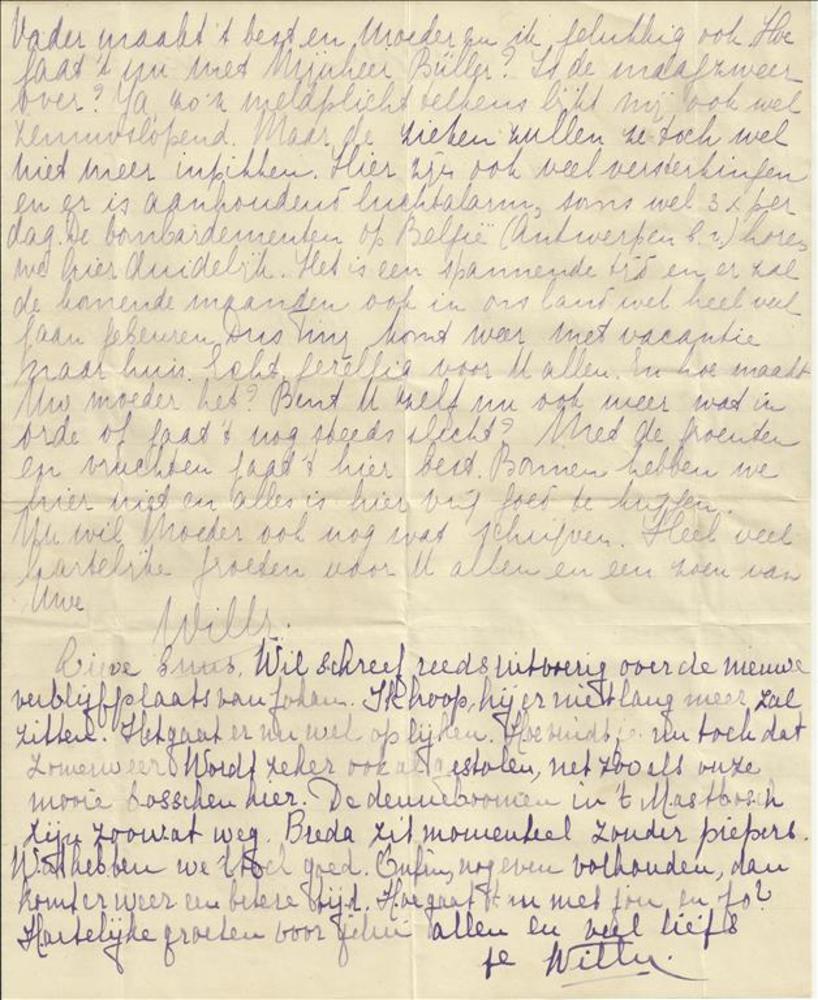 Vader maakt 't best en Moeder en ik gelukkig ook. Hoe
gaat 't nu met Mijnheer Büller? Is de maagzweer
over? Ja zo'n meldplicht telkens lijkt mij ook wel
zenuwslopend. Maar de zieken zullen ze toch wel
niet meer inpikken. Hier zijn ook veel versterkingen
en er is aanhoudend luchtalarm, soms wel 3 x per
dag. De bombardementen op België (Antwerpen b.v.) horen
we hier duidelijk. Het is een spannende tijd en er zal
de komende maanden ook in ons land wel heel veel
gaan gebeuren. Dus komt weer met vacantie
naar huis. Echt gezellig voor U allen. En hoe maakt
Uw moeder het? Bent U zelf nu ook weer wat in
orde of gaat 't nog steeds slecht? Met de groenten
en vruchten gaat 't hier best. Bonnen hebben we
hier niet en alles is hier vrij goed te krijgen.
Nu wil Moeder ook nog wat schrijven. Heel veel
hartelijke groeten voor U allen en een zoen van
Uwe
Willy.
Lieve Wil schreef reeds uitvoerig over de nieuwe
verblijfplaats van Johan. Ik hoop, hij er niet lang meer zal
zitten. Het gaat er nu wel op lijken. Hoe vindt je nu toch dat
zomerweer. Wordt zeker ook al gestolen, net zooals onze
mooie bosschen hier. De denneboomen in 't Mastbosch
zijn zoowat weg. Breda zit momenteel zonder piepers.
Wat hebben we 't toch goed. Enfin, nog even volhouden, dan
komt er weer een betere tijd. Hoe gaat 't nu met jou en Jo?
Hartelijke groeten voor jelui allen en veel liefs
je Willy.